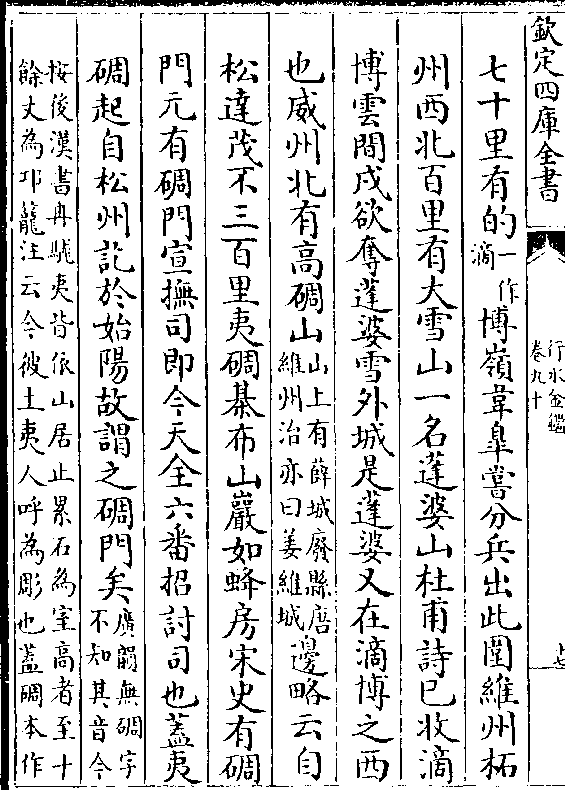 欽定四庫全書
行水金鑑
卷九十
十七
七十里有的一作滴博嶺韋臯嘗分兵出此圍維州柘
州西北百里有大雪山一名蓬婆山杜甫詩已收滴
博雲間戍欲奪蓬婆雪外城是蓬婆又在滴博之西
也威州北有高碉山山上有薛城廢縣唐維州治亦曰姜維城邊略云自
松達茂不三百里夷碉碁布山巖如蜂房宋史有碉
門元有碉門宣撫司即今天全六番招討司也蓋夷
碉起自松州訖於始陽故謂之碉門矣廣韻無碉字不知其音今
按後漢書冉駹夷皆依山居止累石為室高者至十
餘丈為邛籠注云今彼土夷人呼為彫也蓋碉本作